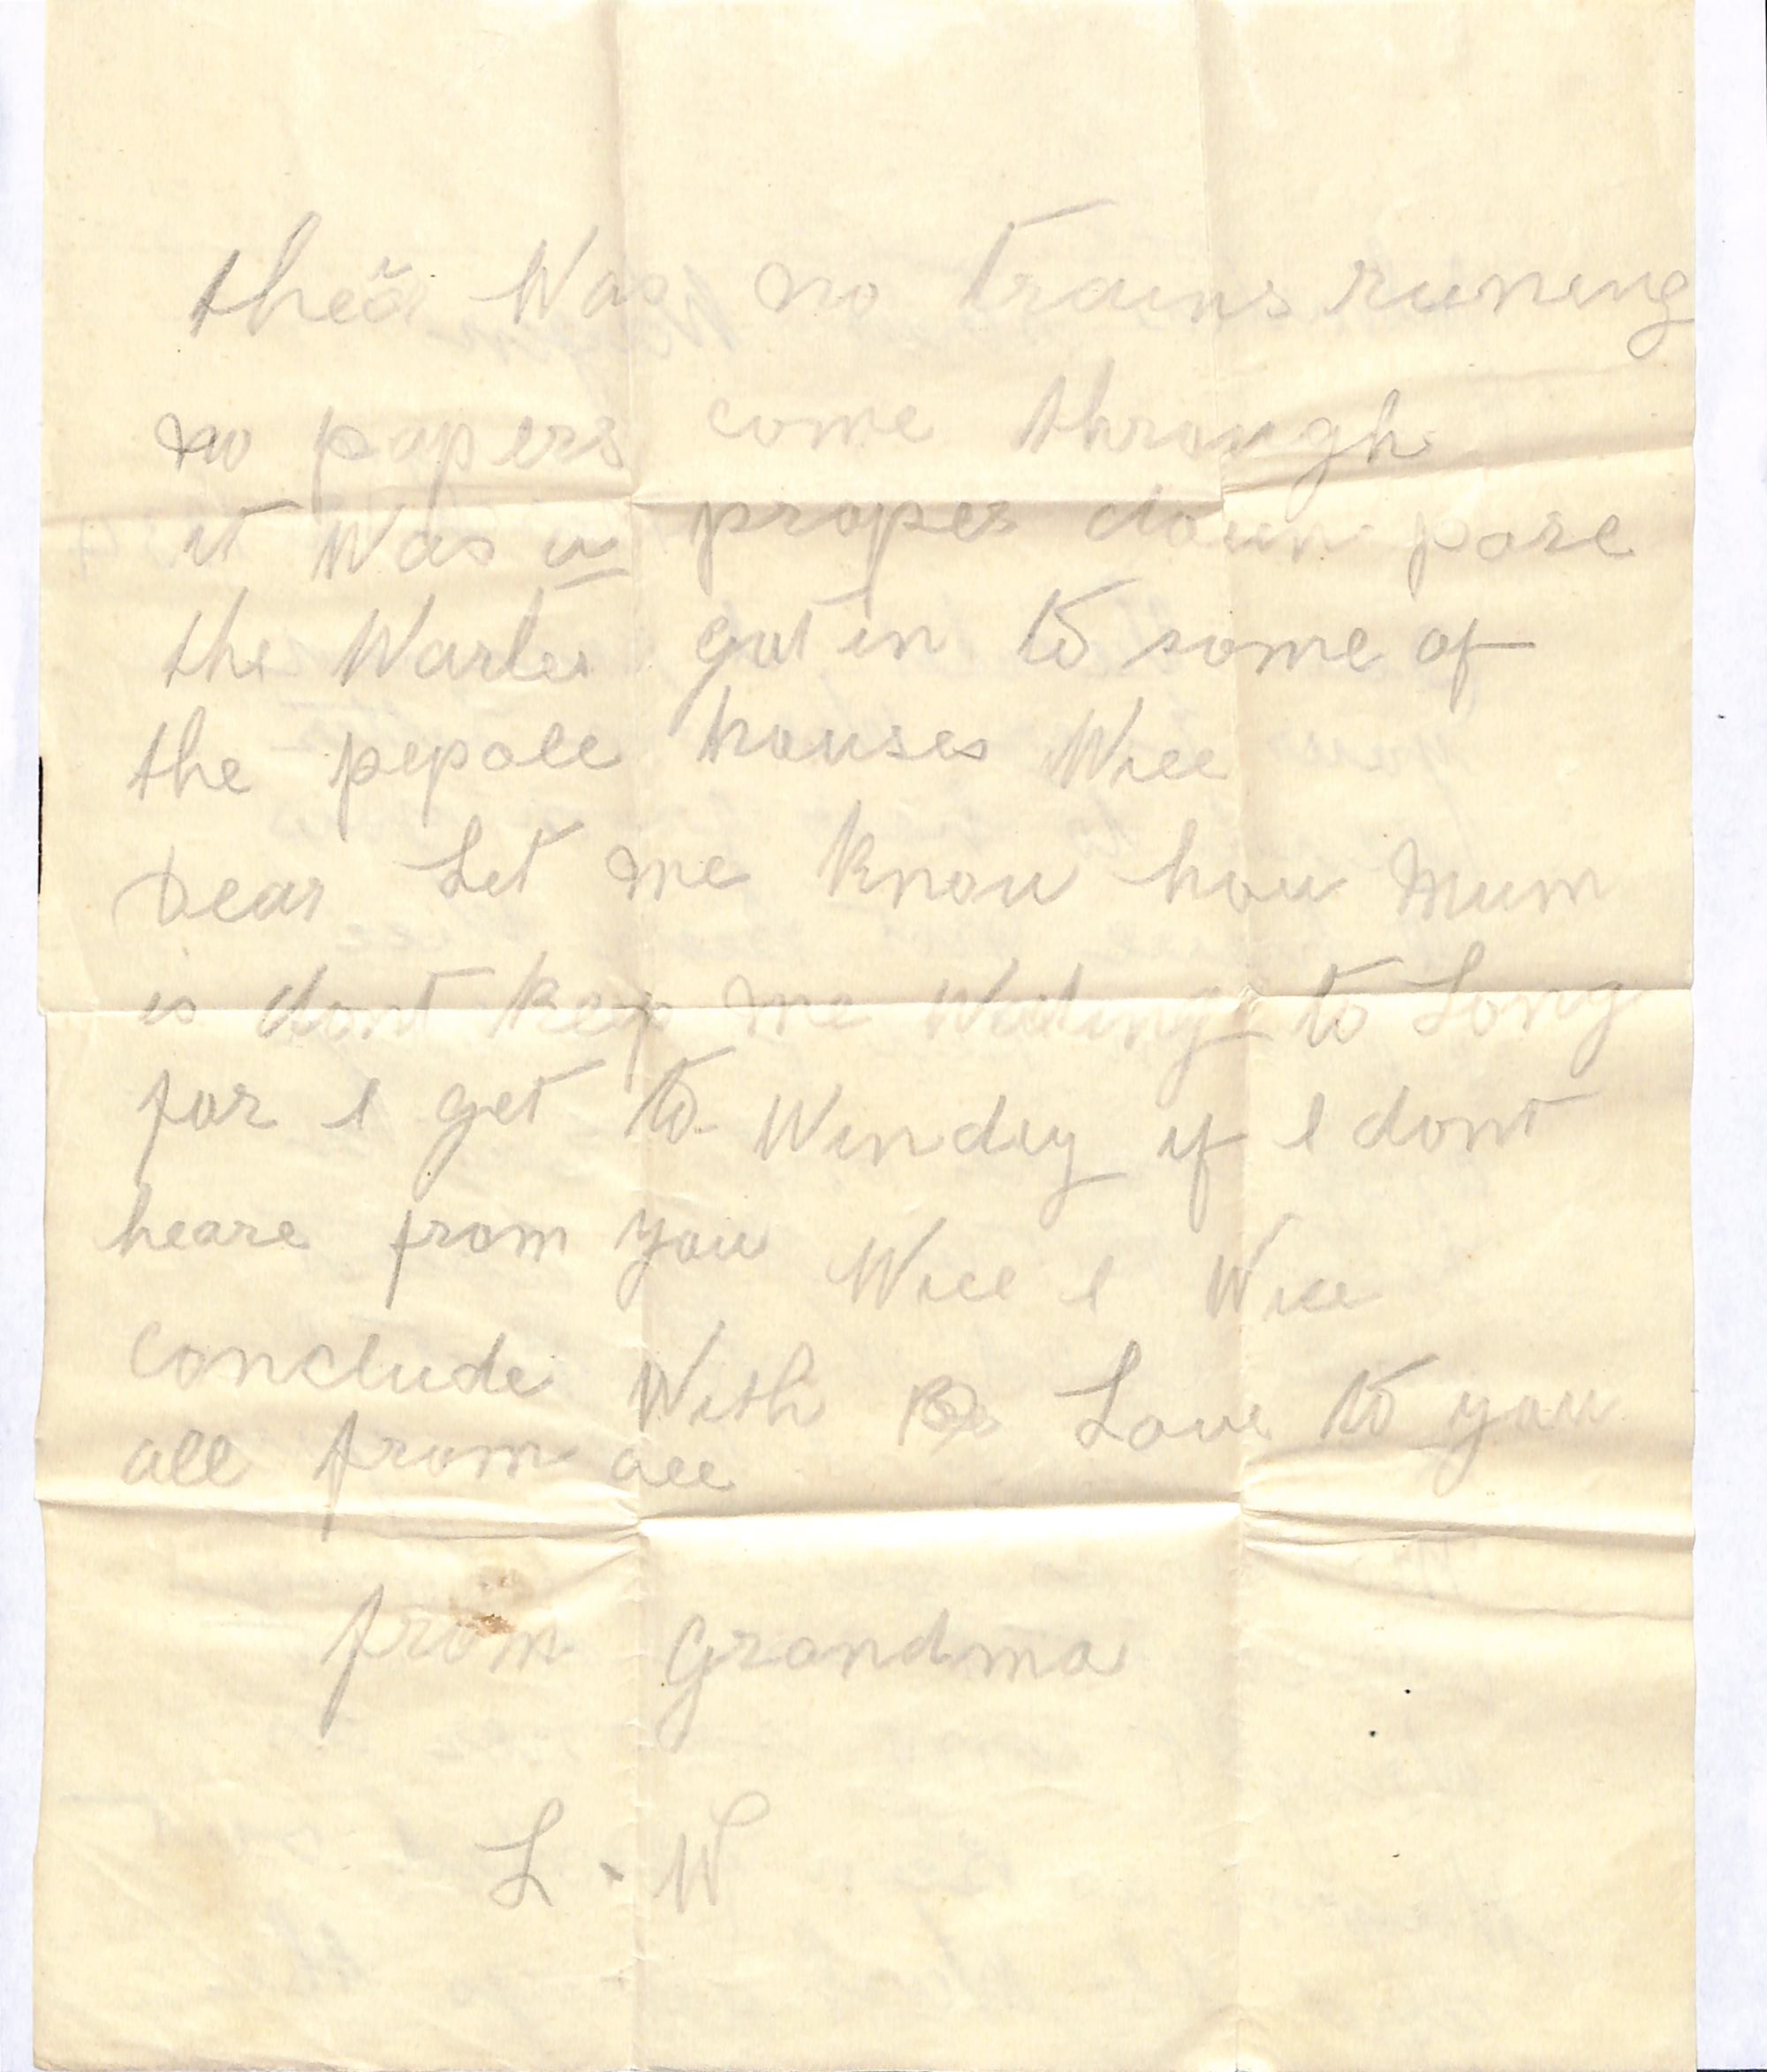 Was no trains runing
no papers come through
it Was a proper down pore
the Warter got in to some of
the pepole houses Will
Dear Let me know how Mum
is dont keep me Waiting to Long
for I get to Windey if I dont
heare from you Will I Will
conclude With Love to you
all from all
from Grandma
L. W